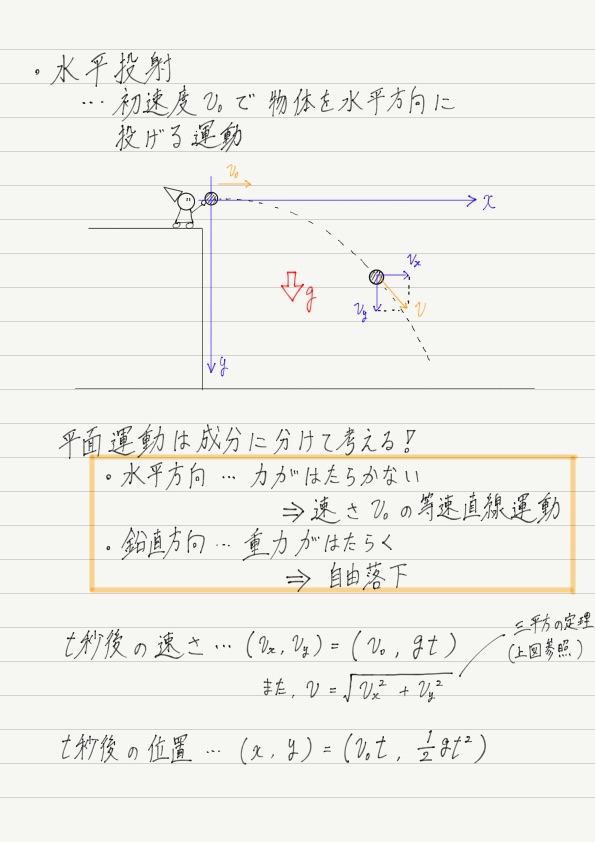 ・水平投射
… 初速度 v₀ で 物体を水平方向に
投げる運動
v₀
x
vₓ
g
v_y
v
y
平面運動は成分に分けて考える!
・水平方向 … 力がはたらかない
⇒ 速さ v₀ の等速直線運動
・鉛直方向 … 重力がはたらく
⇒ 自由落下
三平方の定理
(上図参照)
t秒後の速さ … (vₓ, v_y) = (v₀, gt)
また, v = √(vₓ² + v_y²)
t秒後の位置 … (x, y) = (v₀t, ½gt²)